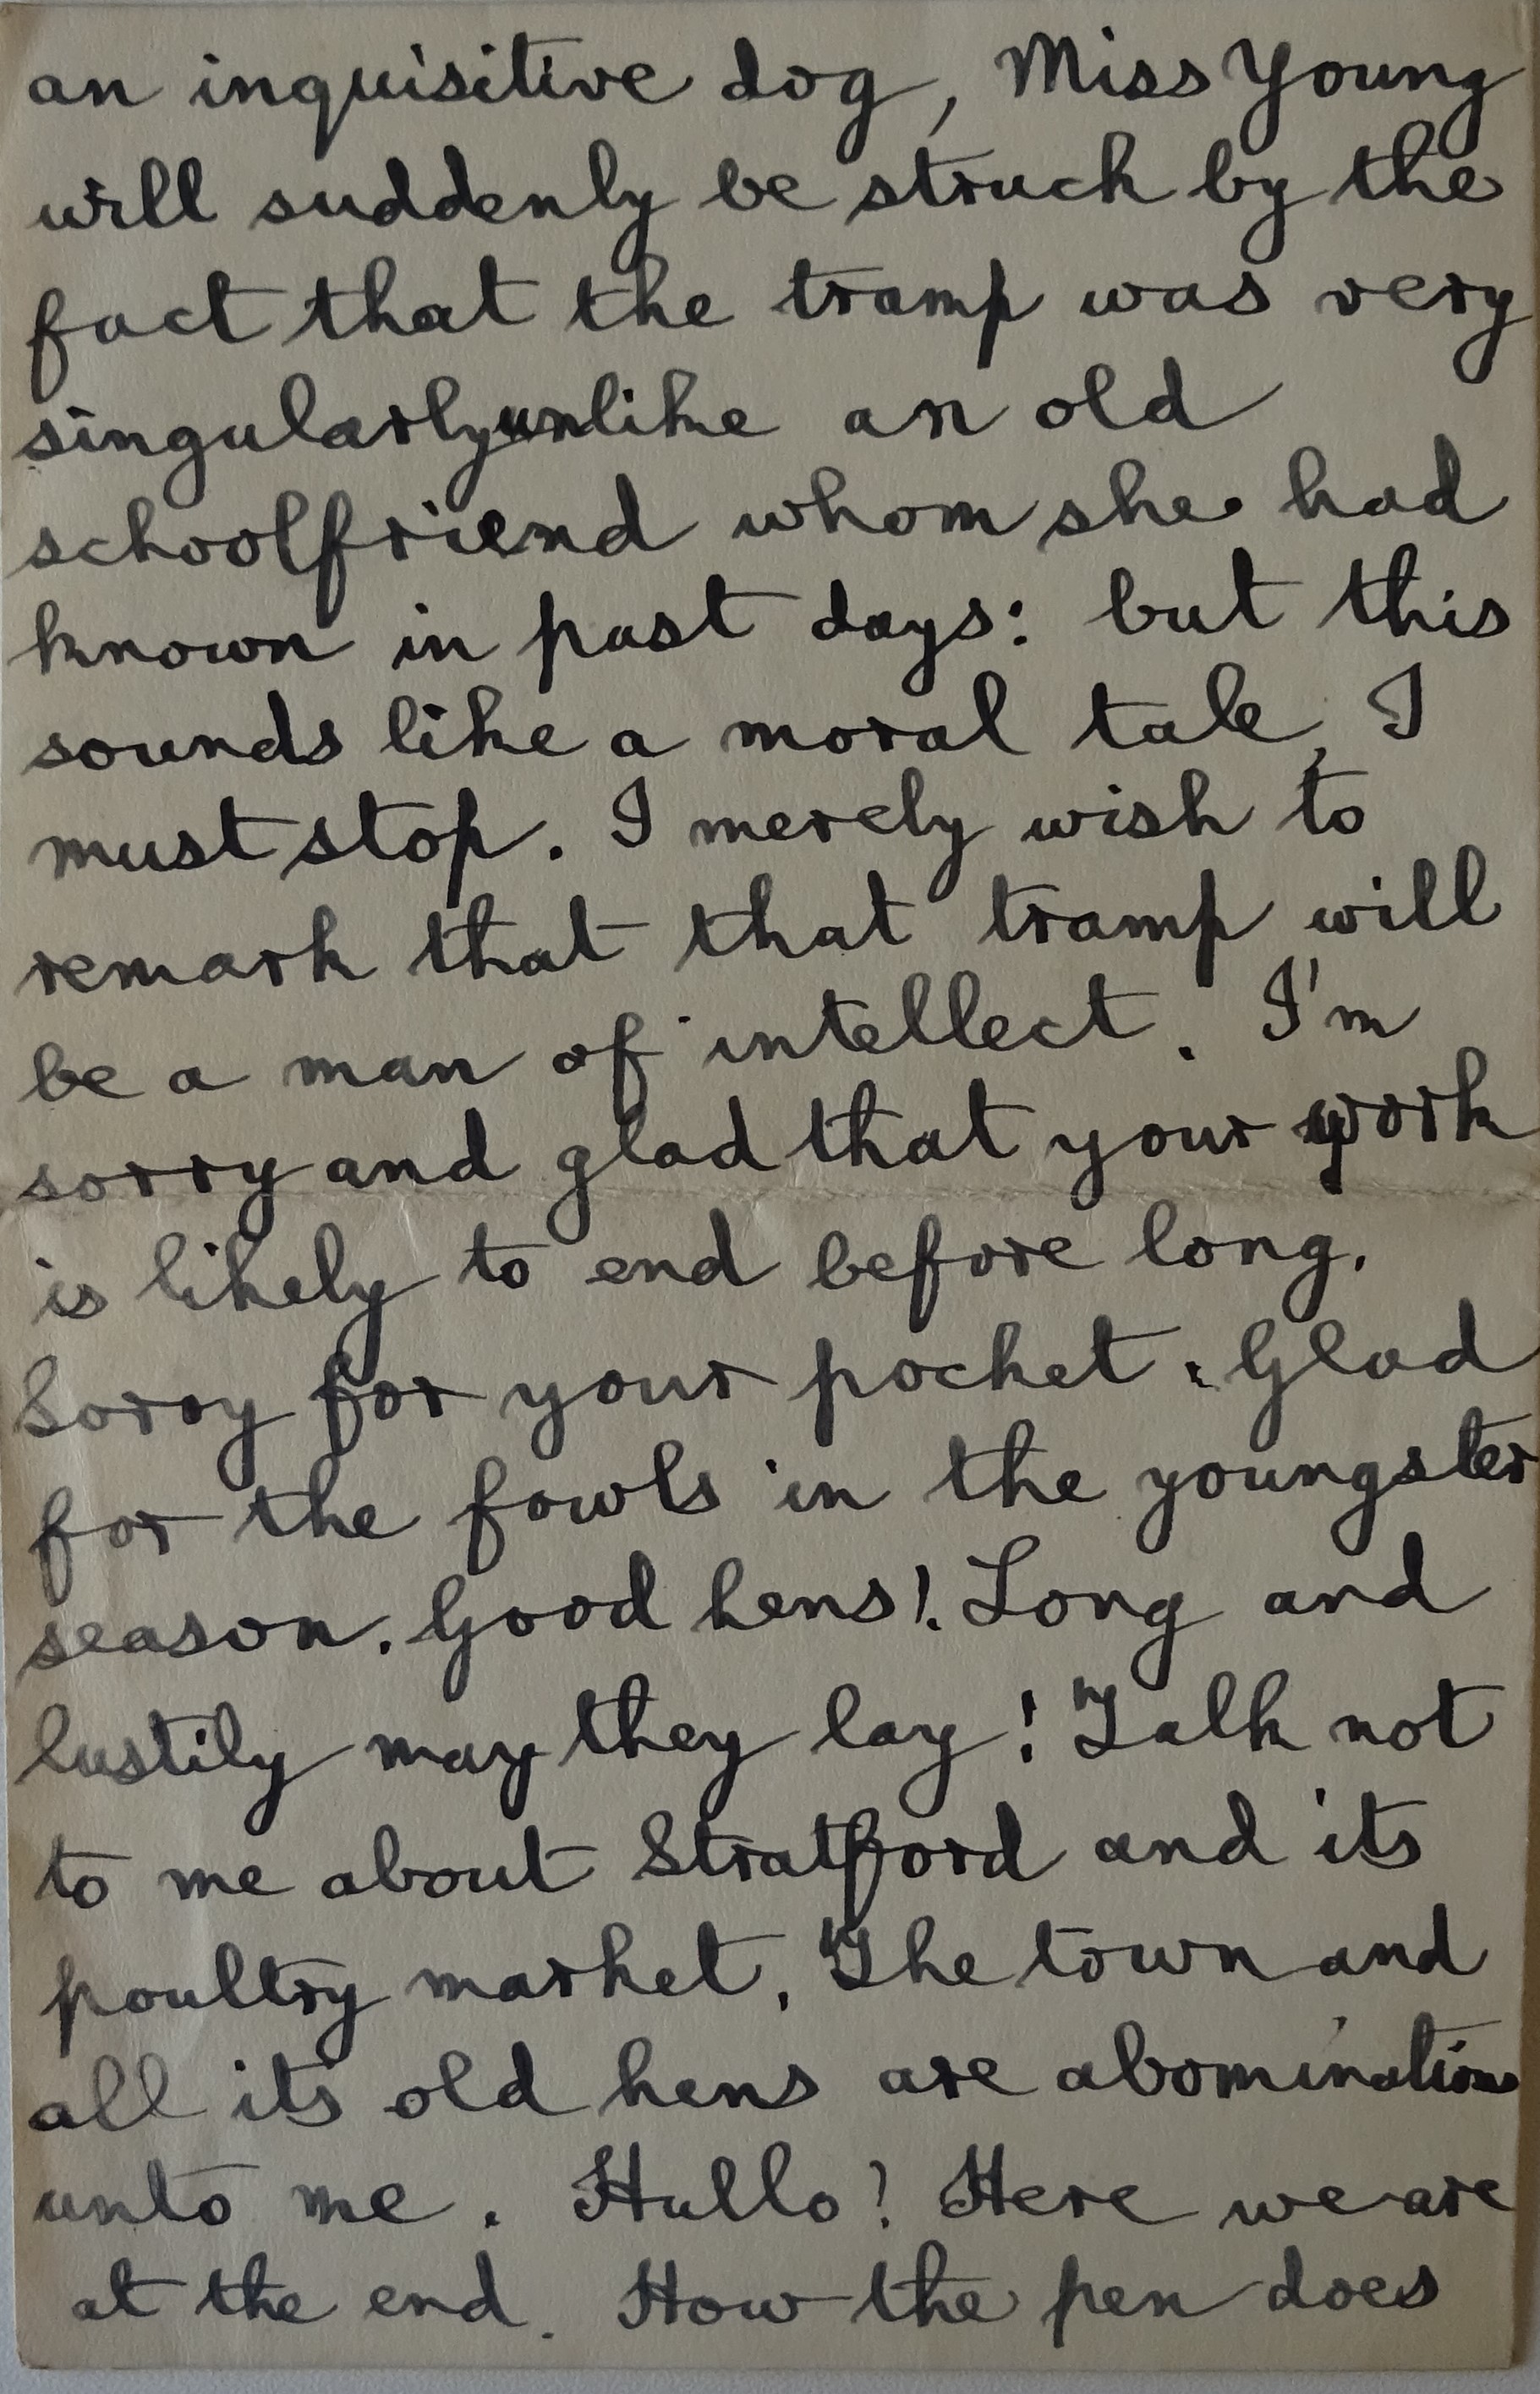 an inquisitive dog, Miss Young
will suddenly be struck by the
fact that the tramp was very
singularly unlike an old
schoolfriend whom she had
known in past days: but this
sounds like a moral tale, I
must stop. I merely wish to
remark that that tramp will
be a man of intellect. I'm
sorry and glad that your work
is likely to end before long.
Sorry for your pocket: Glad
for the fowls in the youngster
season. Good hens! Long and
lustily may they lay! Talk not
to me about Stratford and its
poultry market. The town and
all its old hens are abominations
unto me. Hullo! Here we are
at the end. How the pen does